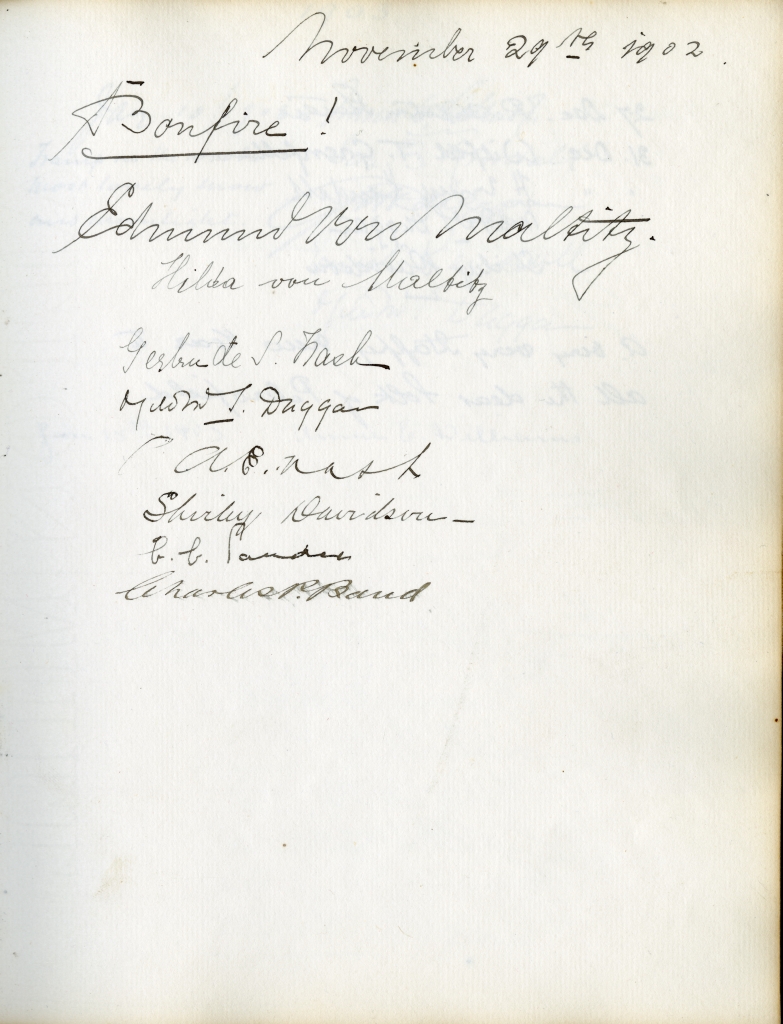 November 29th 1902.
A Bonfire!
Edmund von Maltitz.
Hilda von Maltitz
Gertrude S. Nash
S. Duggan
A. E. Nash
Shirley Davidson
C. C.
Charles P. Band